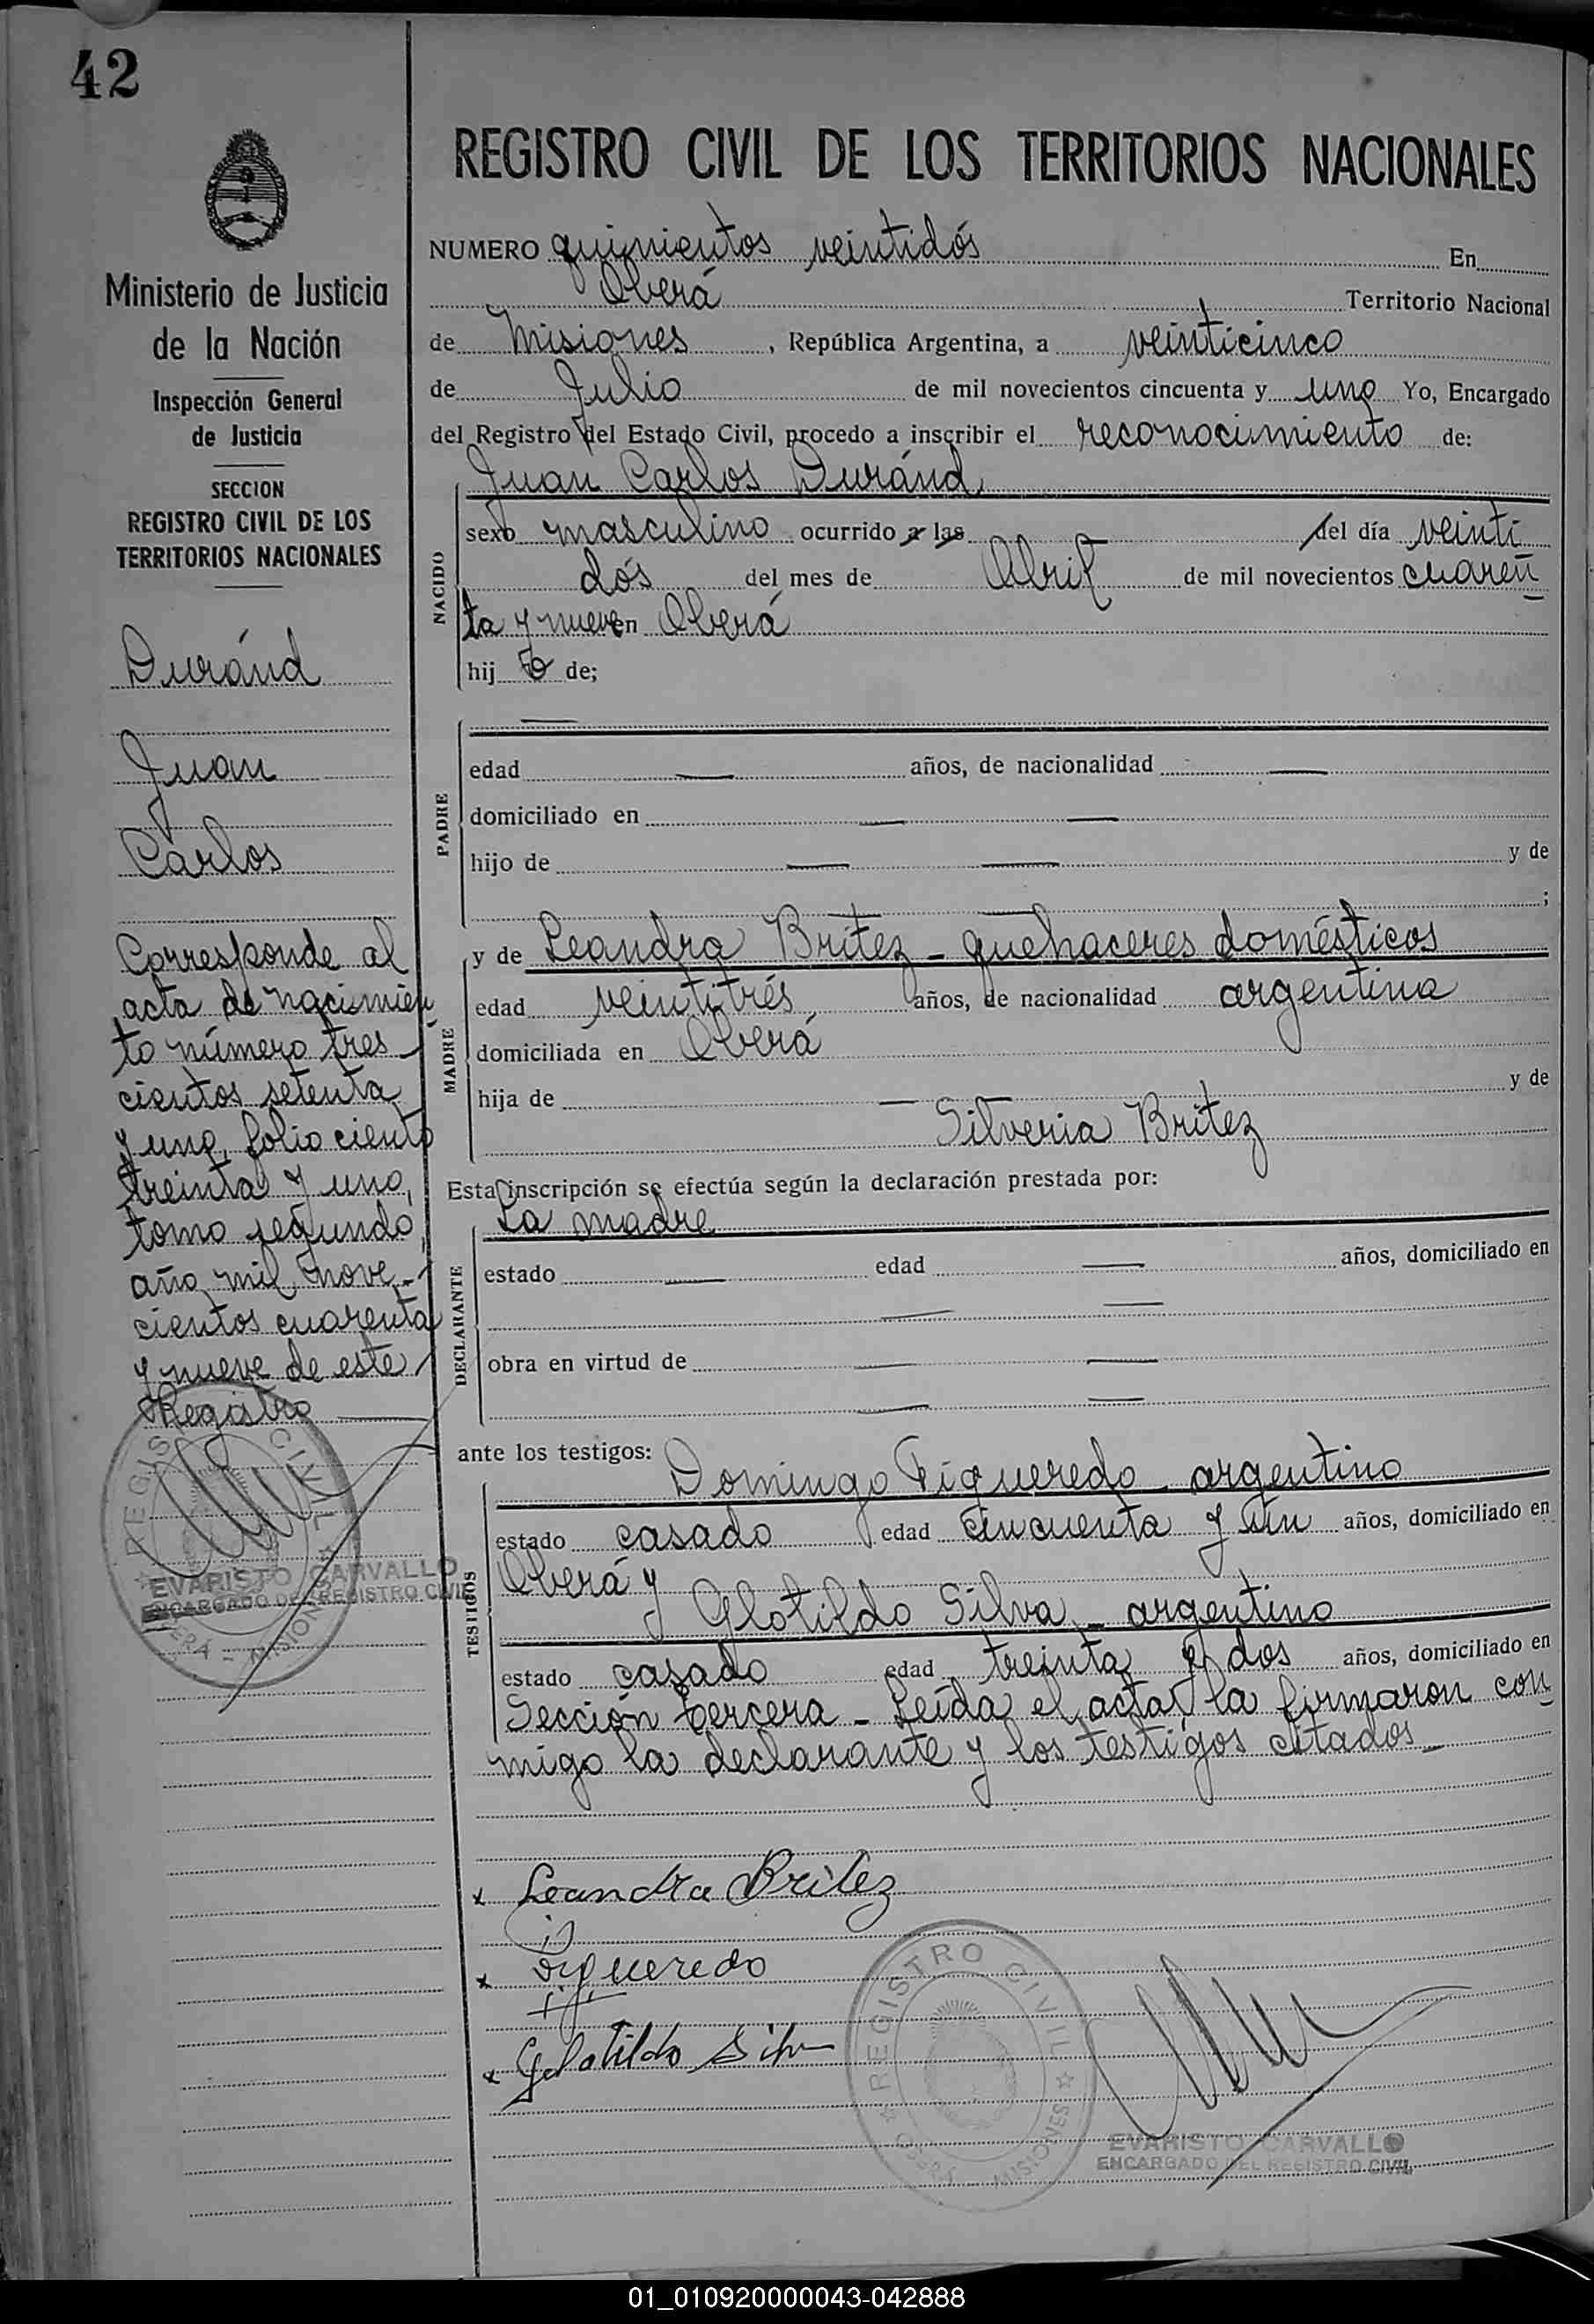 42
Ministerio de Justicia
de la Nación
Inspección General
de Justicia
SECCION
REGISTRO CIVIL DE LOS
TERRITORIOS NACIONALES
Duránd
Juan
Carlos
Corresponde al
acta de nacimien
to número tres
cientos setenta
y uno, folio ciento
treinta y uno,
tomo segundo,
año mil nove-
cientos cuarenta
y nueve de este
Registro
REGISTRO CIVIL
EVARISTO CARVALLO
ENCARGADO DEL REGISTRO CIVIL
REGISTRO CIVIL DE LOS TERRITORIOS NACIONALES
NUMERO quinientos veintidós En
Oberá Territorio Nacional
de Misiones, República Argentina, a veinticinco
de Julio de mil novecientos cincuenta y uno Yo, Encargado
del Registro del Estado Civil, procedo a inscribir el reconocimiento de:
Juan Carlos Duránd
NACIDO
sexo masculino ocurrido a las del día veinti
dós del mes de Abril de mil novecientos cuaren
ta y nueve en Oberá
hijo de;
PADRE
edad — años, de nacionalidad —
domiciliado en — —
hijo de — — y de
— — ;
MADRE
y de Leandra Britez - quehaceres domésticos
edad veintitrés años, de nacionalidad argentina
domiciliada en Oberá
hija de — y de
Silveria Britez
Esta inscripción se efectúa según la declaración prestada por:
DECLARANTE
La madre
estado — edad — años, domiciliado en
— —
obra en virtud de — —
— —
ante los testigos:
TESTIGOS
Domingo Figueredo - argentino
estado casado edad cincuenta y un años, domiciliado en
Oberá y
Glotildo Silva - argentino
estado casado edad treinta y dos años, domiciliado en
Sección tercera - Leída el acta, la firmaron con
migo la declarante y los testigos citados
x Leandra Britez
x Figueredo
x Glotildo Silva
REGISTRO CIVIL
OBERÁ MISIONES
EVARISTO CARVALLO
ENCARGADO DEL REGISTRO CIVIL
01_010920000043-042888